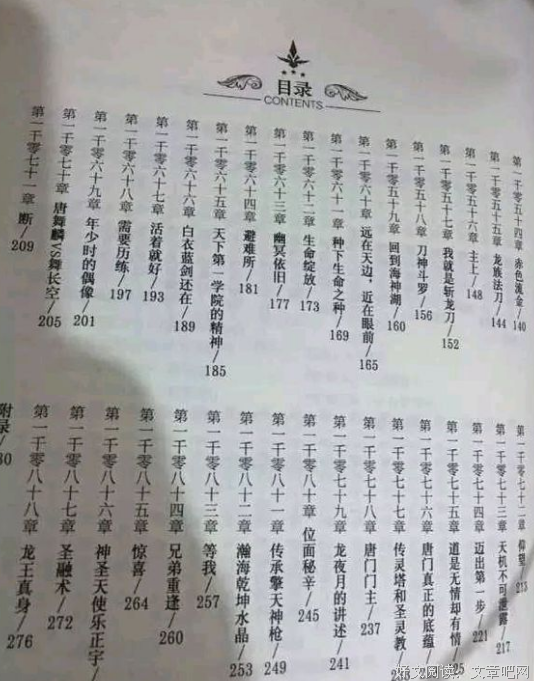 目录
CONTENTS
第一千零五十四章 赤色流金/140
第一千零五十五章 龙族法刀/144
第一千零五十六章 主上/148
第一千零五十七章 我就是斩龙刀/152
第一千零五十八章 刀神斗罗/156
第一千零五十九章 回到海神湖/160
第一千零六十章 远在天边，近在眼前/165
第一千零六十一章 种下生命之种/169
第一千零六十二章 生命绽放/173
第一千零六十三章 幽冥依旧/177
第一千零六十四章 避难所/181
第一千零六十五章 天下第一学院的精神/185
第一千零六十六章 白衣蓝剑还在/189
第一千零六十七章 活着就好/193
第一千零六十八章 需要历练/197
第一千零六十九章 年少时的偶像/201
第一千零七十章 唐舞麟VS舞长空/205
第一千零七十一章 断/209
第一千零七十二章 仰望/213
第一千零七十三章 天机不可泄露/217
第一千零七十四章 迈出第一步/221
第一千零七十五章 道是无情却有情/
第一千零七十六章 唐门真正的底蕴/
第一千零七十七章 传灵塔和圣灵教/
第一千零七十八章 唐门门主/237
第一千零七十九章 龙夜月的讲述/241
第一千零八十章 位面秘辛/245
第一千零八十一章 传承擎天神枪/249
第一千零八十二章 瀚海乾坤水晶/253
第一千零八十三章 等我/257
第一千零八十四章 兄弟重逢/260
第一千零八十五章 惊喜/264
第一千零八十六章 神圣天使乐正宇/
第一千零八十七章 圣融术/272
第一千零八十八章 龙王真身/276
附录/
好文阅读：文章吧网